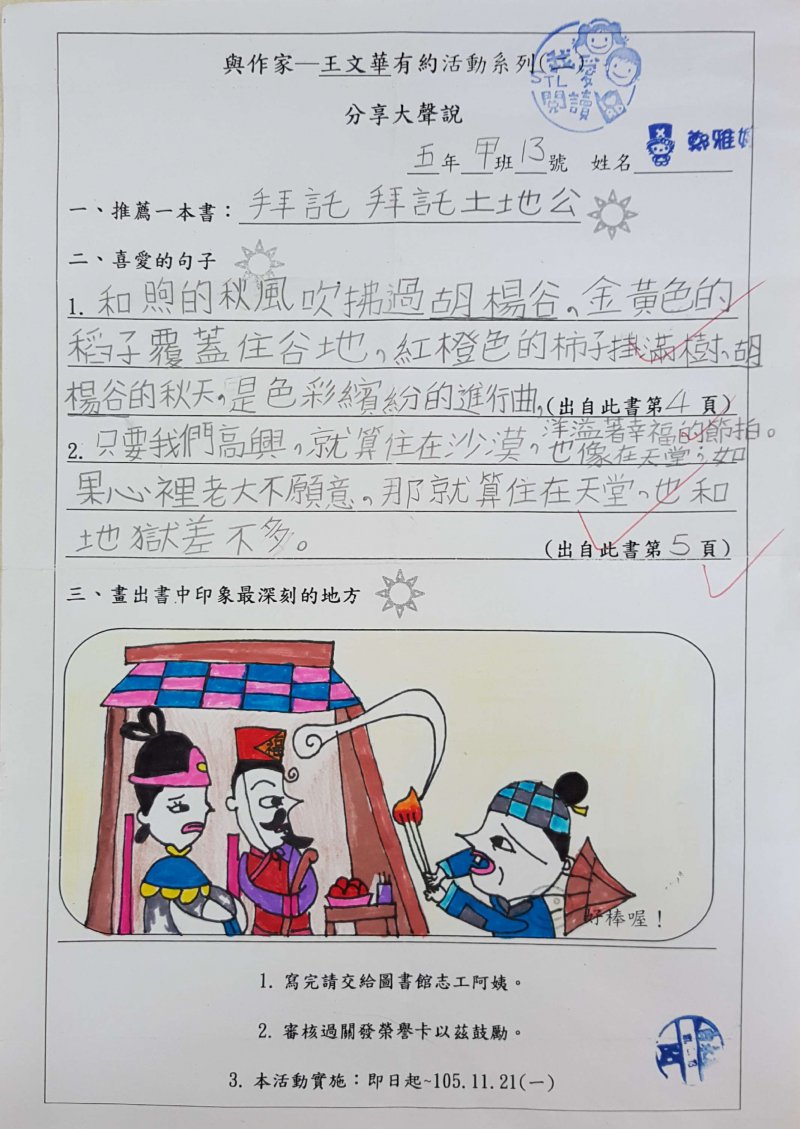 與作家—王文華有約活動系列(一)
我愛
STL
閱讀
分享大聲說
五年甲班13號 姓名 鄭雅
一、推薦一本書：拜託 拜託土地公
二、喜愛的句子
1. 和煦的秋風吹拂過胡楊谷，金黃色的
稻子覆蓋住谷地，紅橙色的柿子掛滿樹，胡
楊谷的秋天，是色彩繽紛的進行曲，(出自此書第4頁)
洋溢著幸福的節拍。
2. 只要我們高興，就算住在沙漠，也像在天堂；如
果心裡老大不願意，那就算住在天堂，也和
地獄差不多。 (出自此書第5頁)
三、畫出書中印象最深刻的地方
福
好棒喔！
1. 寫完請交給圖書館志工阿姨。
2. 審核過關發榮譽卡以茲鼓勵。
3. 本活動實施：即日起~105.11.21(一)